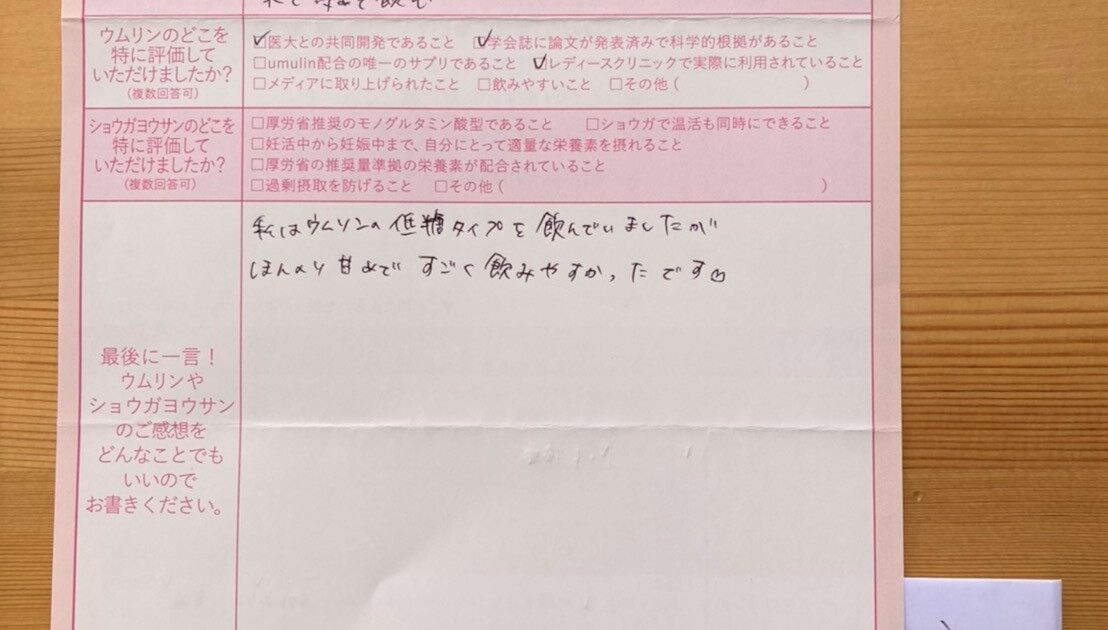 ウムリンのどこを
特に評価して
いただけましたか?
(複数回答可)
□医大との共同開発であること □学会誌に論文が発表済みで科学的根拠があること
□umulin配合の唯一のサプリであること □レディースクリニックで実際に利用されていること
□メディアに取り上げられたこと □飲みやすいこと □その他 ( )
ショウガヨウサンのどこを
特に評価して
いただけましたか?
(複数回答可)
□厚労省推奨のモノグルタミン酸型であること □ショウガで温活も同時にできること
□妊活中から妊娠中まで、自分にとって適量な栄養素を摂れること
□厚労省の推奨量準拠の栄養素が配合されていること
□過剰摂取を防げること □その他 ( )
最後に一言!
ウムリンや
ショウガヨウサン
のご感想を
どんなことでも
いいので
お書きください。
私はウムリンの低糖タイプを飲んでいましたが
ほんのり甘めで すごく飲みやすかったです♡